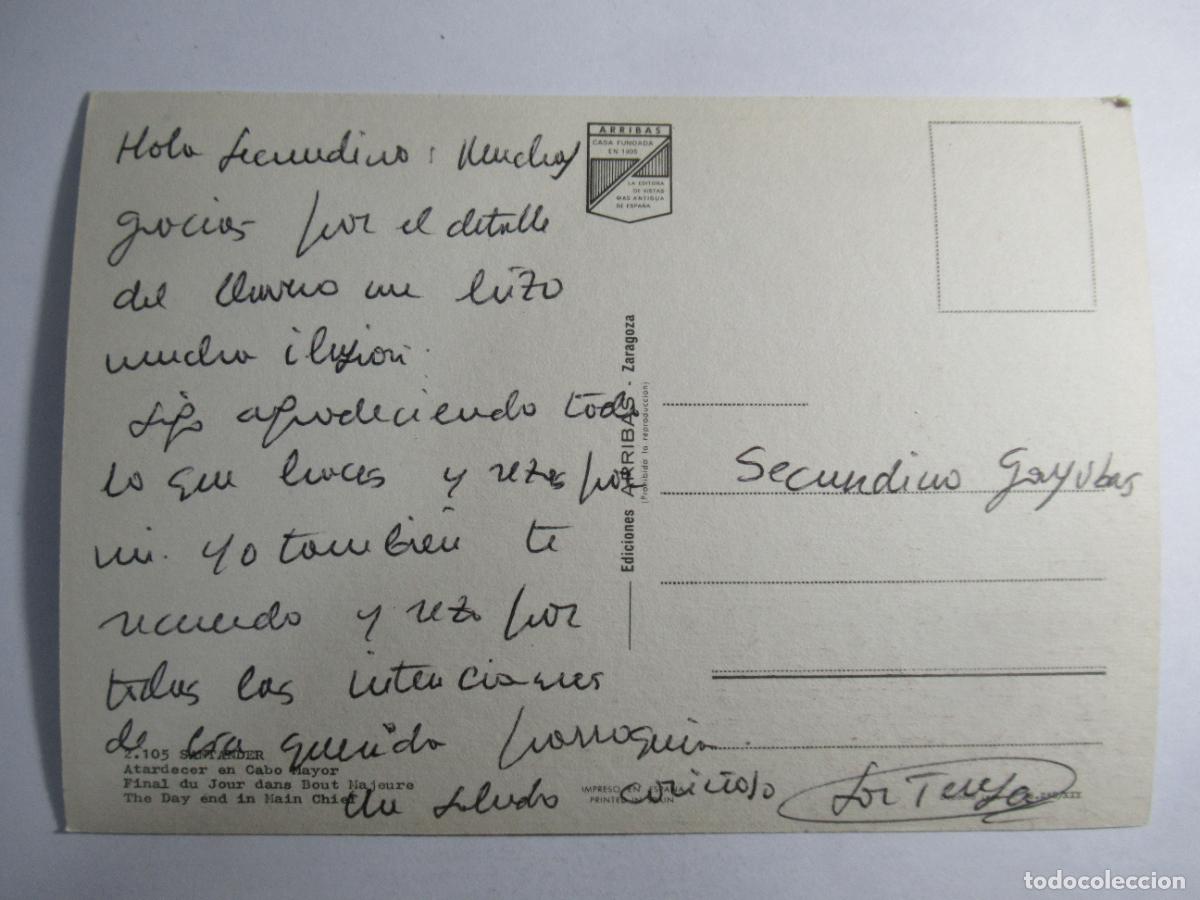 Hola Secundino: Muchas
gracias por el detalle
del llavero me hizo
mucha ilusión.
Sigo agradeciendo todo
lo que haces y rezas por
mi. Yo también te
recuerdo y rezo por
todas las intenciones
de esa querida parroquia.
Un saludo cariñoso Sor Teresa
ARRIBAS
CASA FUNDADA
EN 1905
LA EDITORA
DE VISTAS
MAS ANTIGUA
DE ESPAÑA
Ediciones ARRIBAS - Zaragoza
(Prohibida la reproducción)
Secundino Gayubas
2.105 SANTANDER
Atardecer en Cabo Mayor
Final du Jour dans Bout Majeure
The Day end in Main Chief
IMPRESO EN ESPAÑA
PRINTED IN SPAIN
todocoleccion